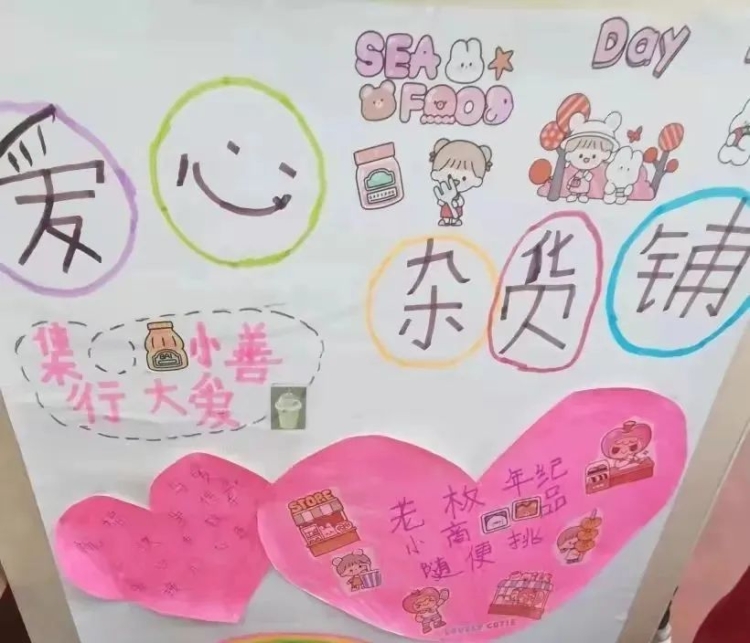 SEA
FOOD
Day
爱心
杂货铺
集小善
行大爱
STORE
老枚年纪
小商品
随便挑
LOVELY CUTIE